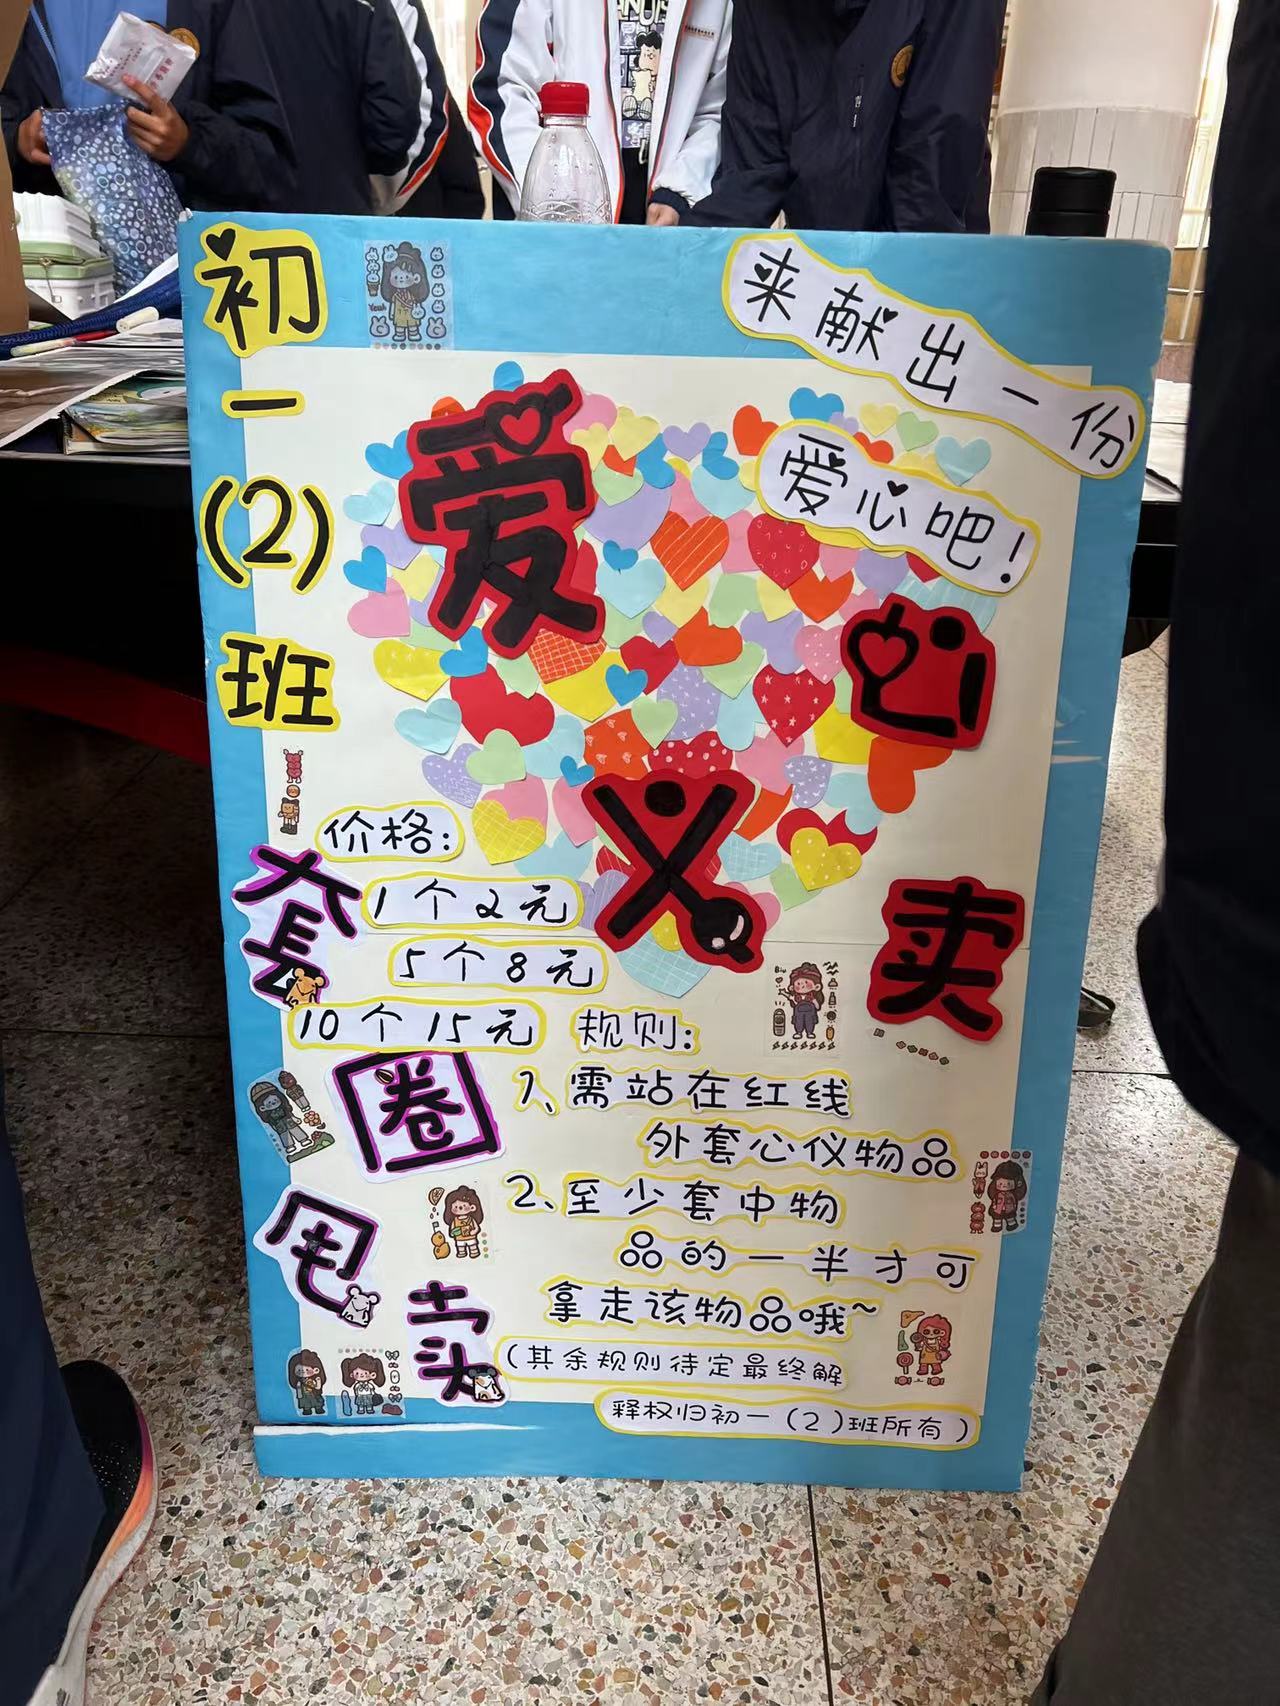 初一(2)班
来献出一份
爱心吧!
爱心义卖
价格:
1个2元
5个8元
10个15元
套圈甩卖
规则:
1、需站在红线
外套心仪物品
2、至少套中物
品的一半才可
拿走该物品哦~
(其余规则待定最终解
释权归初一(2)班所有)